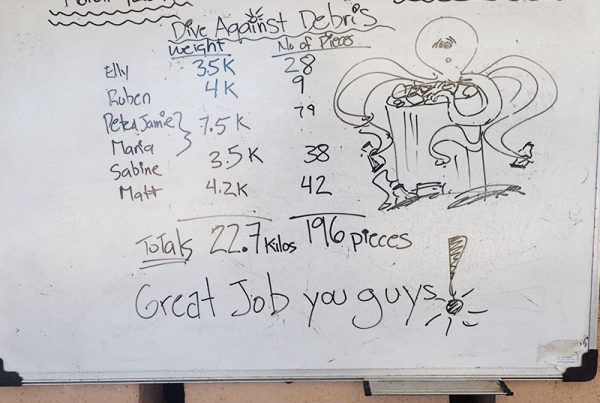 Dive Against Debris
Weight No of Pieces
Elly 35K 28
Ruben 4K 9
Pete & Jamie 7.5K 79
Maria
Sabine 3.5K 38
Matt 4.2K 42
Totals 22.7 Kilos 196 pieces
Great Job you guys!